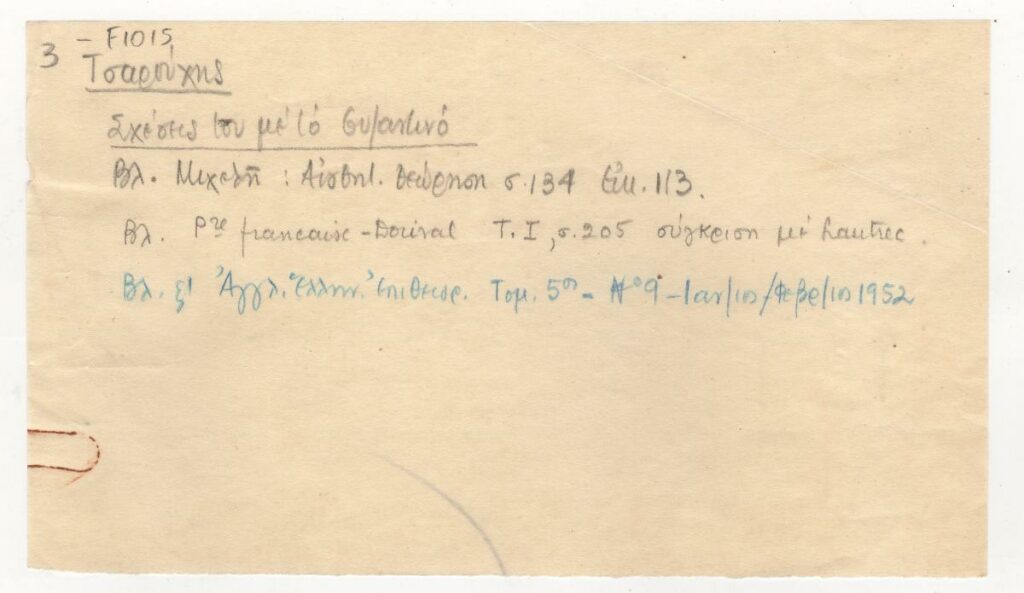 3 – F1015
Τσαρούχης
Σχέσεις του μέ τό Βυζαντινό
Βλ. Μιχελῆ : Αἰσθητ. θεώρηση σ. 134 Εἰκ. 113.
Βλ. Pre francaise – Dorival T. I, σ. 205 σύγκριση μέ Lautrec.
Βλ. Ἀγγλ. Ἑλλην. Ἐπιθεωρ. Τομ. 5ος – No 9 – Ιαν/ιος/Φεβρ/ιος 1952